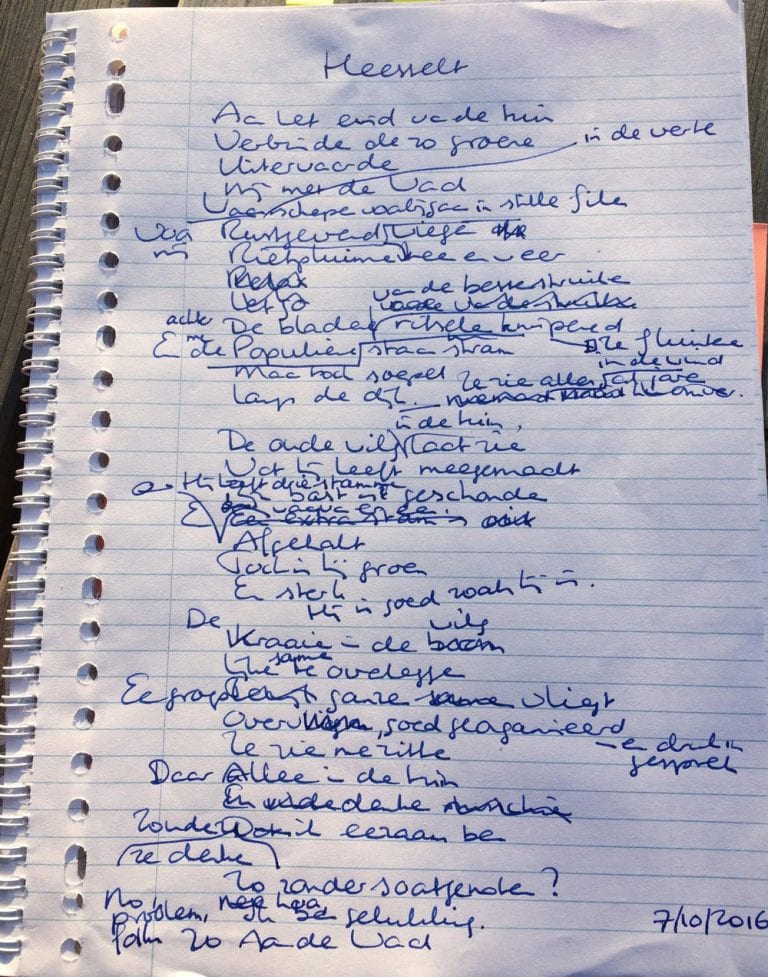 Heesselt
Aa het eind va de tuin
Verbinde de zo groene
in de verte
Uiterwaarde
mij met de Waal
Vaarschepe voorbijgaa in stille file
Rustgevend
Rietpluime hee en weer
Relax
va de bessestruike
De blade ritsele knipered
achter
E de Populiere staa stram
Ze fluistere
in de wind
Maa toch soepel
Ze zie alles
Langs de dijk.
in de tuin,
De oude wilg laat zie
Wat hij heeft meegemaakt
Hij heeft drie stamme
bast is geschonde
Afgehakt
Toch is hij groen
En sterk
Hij is goed zoals hij is.
De
Kraaie in de boom
wilg
same te overlegge
Ee groep ganze vliegt
Over, goed georganiseerd
Ze zie me zitte
- en druk in
gesprek
Daar Allee in de tuin
En denke
Zonde Dat ik eenzaam ben
ze denke
Zo zonder soortgenoten?
No
problem, Ik ben gelukkig.
7/10/2016
Zo Aa de Waal